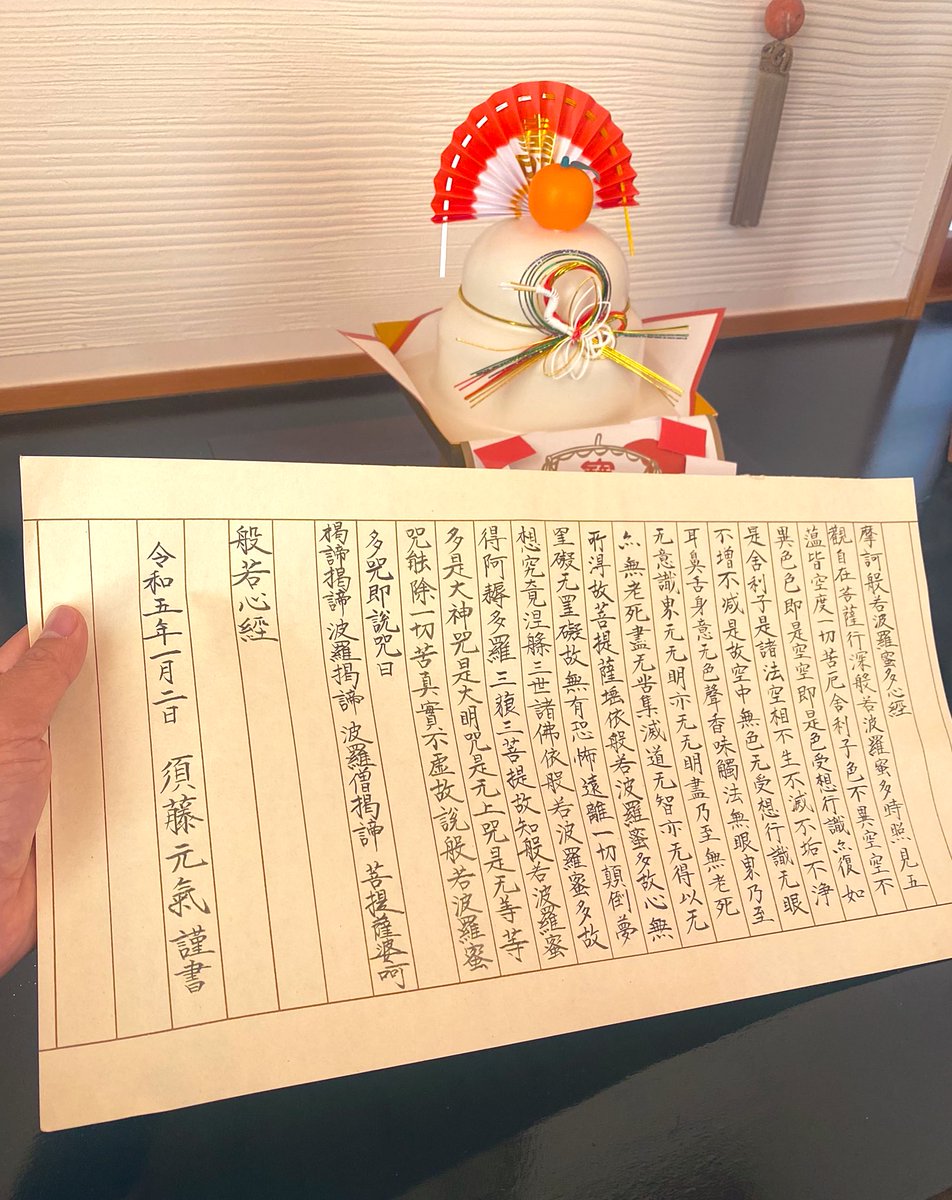 摩訶般若波羅蜜多心經
觀自在菩薩行深般若波羅蜜多時照見五
蕰皆空度一切苦厄舍利子色不異空空不
異色色即是空空即是色受想行識亦復如
是舍利子是諸法空相不生不滅不垢不淨
不增不減是故空中無色无受想行識无眼
耳鼻舌身意无色聲香味觸法無眼界乃至
无意識界无无明亦无无明盡乃至無老死
亦無老死盡无苦集滅道无智亦无得以无
所得故菩提薩埵依般若波羅蜜多故心無
罣礙无罣礙故無有恐怖遠離一切顛倒夢
想究竟涅槃三世諸佛依般若波羅蜜多故
得阿耨多羅三藐三菩提故知般若波羅蜜
多是大神咒是大明咒是无上咒是无等等
咒能除一切苦真實不虛故説般若波羅蜜
多咒即説咒曰
揭諦揭諦 波羅揭諦 波羅僧揭諦 菩提薩婆呵
般若心經
令和五年一月二日 須藤元氣 謹書